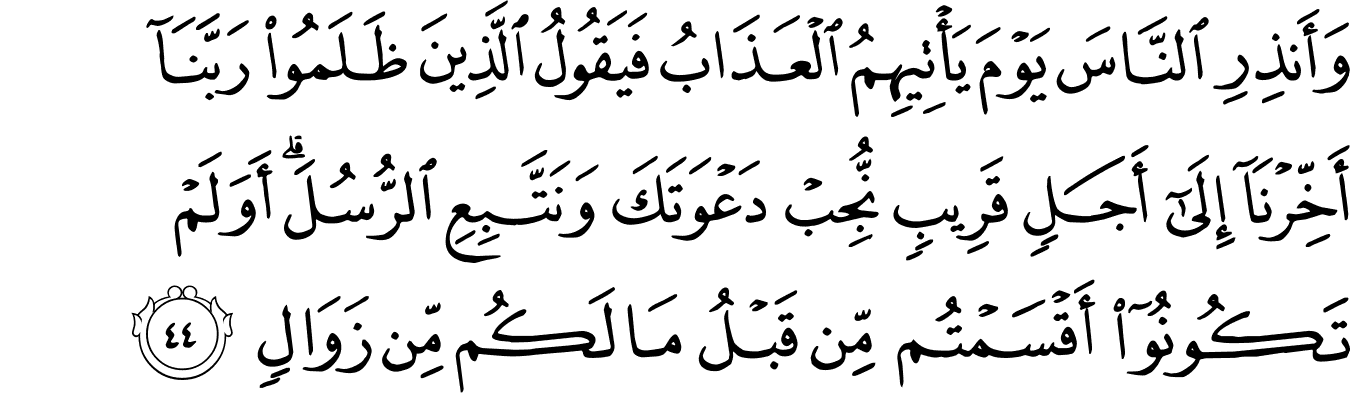 وَأَنذِرِ ٱلنَّاسَ يَوْمَ يَأْتِيهِمُ ٱلْعَذَابُ فَيَقُولُ ٱلَّذِينَ ظَلَمُوا۟ رَبَّنَآ
أَخِّرْنَآ إِلَىٰٓ أَجَلٍ قَرِيبٍ نُّجِبْ دَعْوَتَكَ وَنَتَّبِعِ ٱلرُّسُلَ ۗ أَوَلَمْ
تَكُونُوٓا۟ أَقْسَمْتُم مِّن قَبْلُ مَا لَكُم مِّن زَوَالٍ ٤٤